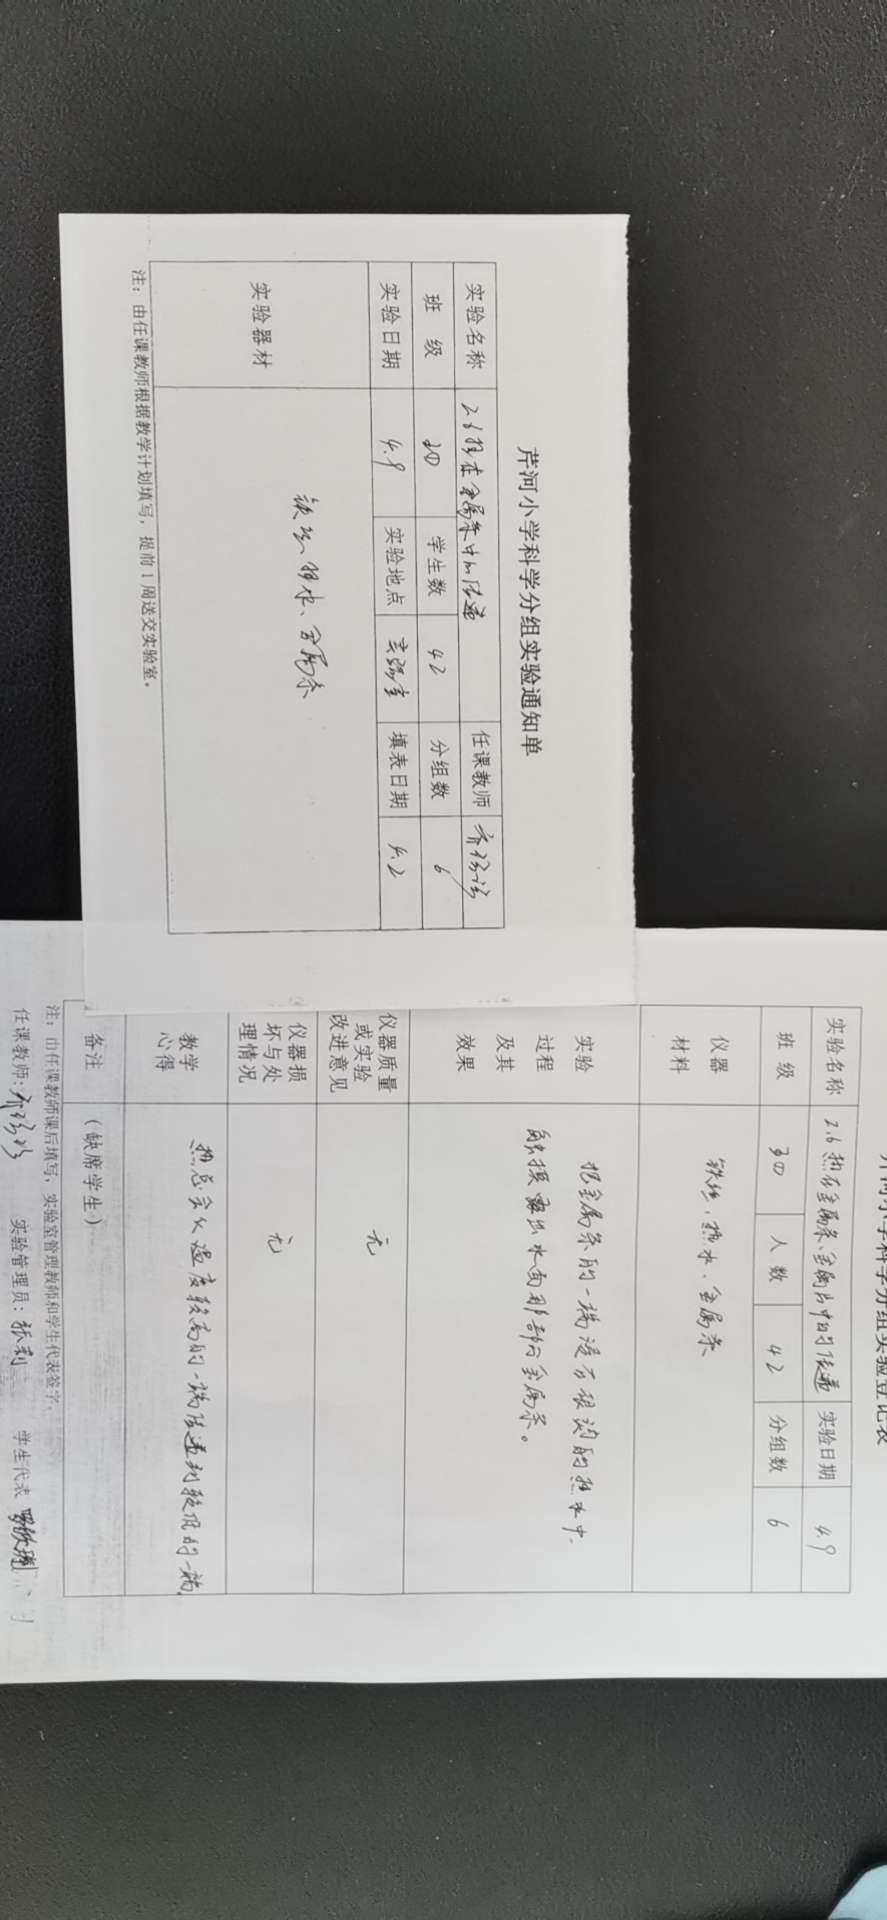 芹河小学科学分组实验通知单
实验名称 2.6热在金属条中的传递 任课教师
班 级 学生数 42 分组数 6
实验日期 4.9 实验地点 实验室 填表日期 4.2
实验器材 铁丝、热水、金属条
注：由任课教师根据教学计划填写，提前1周送交实验室。
芹河小学科学分组实验登记表
实验名称 2.6热在金属条、金属片中的传递 实验日期 4.9
班 级 人 数 42 分组数 6
仪器
材料
铁丝、热水、金属条
实验
过程
及其
效果
把金属条的一端浸在很烫的热水中.
触摸露出水面那部分金属条。
仪器质量
或实验
改进意见
无
仪器损
坏与处
理情况
无
教学
心得
热总会从温度较高的一端传递到较低的一端.
备注 （缺席学生）
注：由任课教师课后填写，实验室管理教师和学生代表签字。
任课教师: 实验管理员: 张利 学生代表